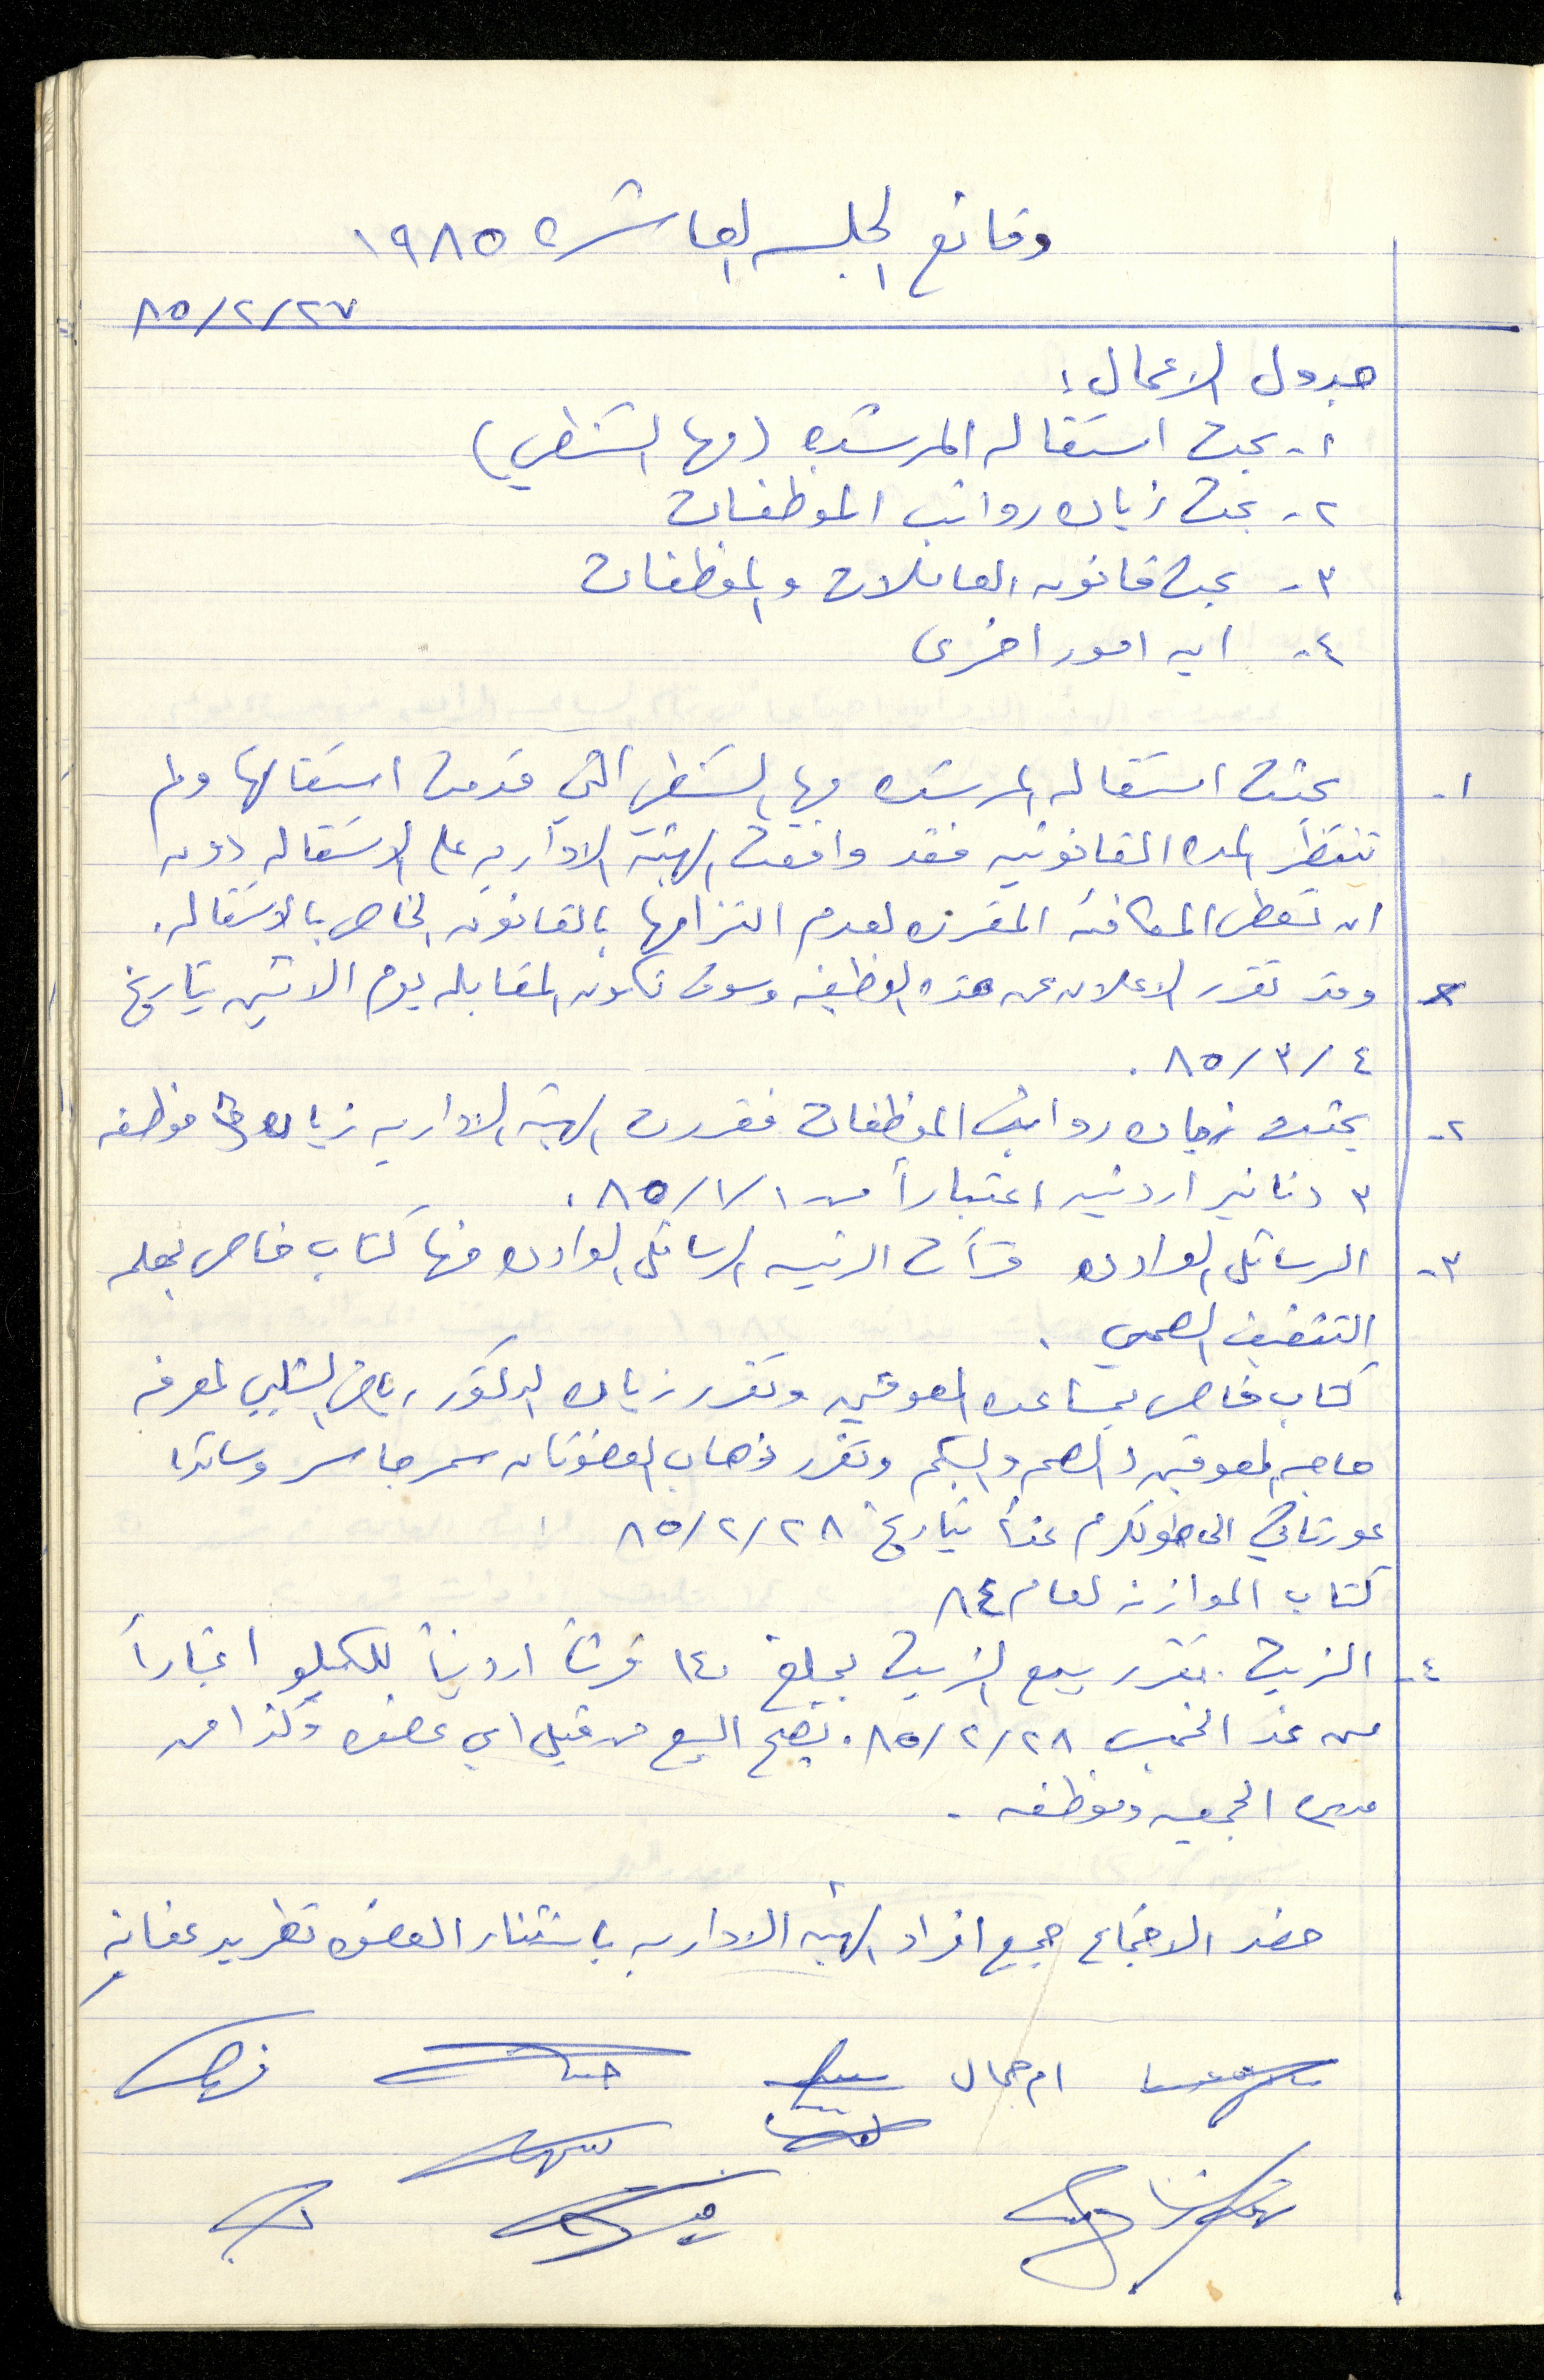 وقائع الجلسه العاشره ١٩٨٥
٨٥/٢/٢٧
جدول الاعمال:
١- بحث استقاله المرشده (مها الشنطي)
٢- بحث زياده رواتب الموظفات
٣- بحث قانون العاملات والموظفات
٤- ايه امور اخرى
١- بحثت استقاله المرشده مها الشنطي التي قدمت استقالتها ولم
تنتظر المده القانونيه فقد وافقت الهيئة الاداريه على الاستقاله دون
ان تعطى المكافئه المقرره لعدم التزامها بالقانون الخاص بالاستقاله.
وقد تقرر الاعلان عن هذه الوظيفه وسوف تكون المقابله يوم الاثنين بتاريخ
٤/٣/٨٥.
٢- بحثت زياده رواتب الموظفات فقررت الهيئه الاداريه زياده موظفه
٣ دنانير اردنيه اعتباراً من ٨٥/١/١.
٣- الرسائل الوارده قرأت الرئيسه الرسائل الوارده منها كتاب خاص بحمله
التثقيف الصحي.
كتاب خاص بمساعده المعوقين وتقرر زياره الدكتور رياض الشلبي لمعرفه
حاجه المعوقين والصم والبكم وتقرر ذهاب العضوتان سمر جاسر وساندا
عورتاني الى طولكرم غداً بتاريخ ٨٥/٢/٢٨
كتاب الموازنه لعام ٨٤
٤- الزيت. تقرر بيع الزيت بمبلغ ١٤٠ قرشاً اردنياً للكيلو اعتباراً
من غد الخميس ٨٥/٢/٢٨. يصح البيع من قبل اي عضوه وكذا من
مديره الجمعيه وموظفه.
حضر الاجتماع جميع افراد الهيئه الاداريه باستثناء العضوه تغريد عنانه
ام جمال